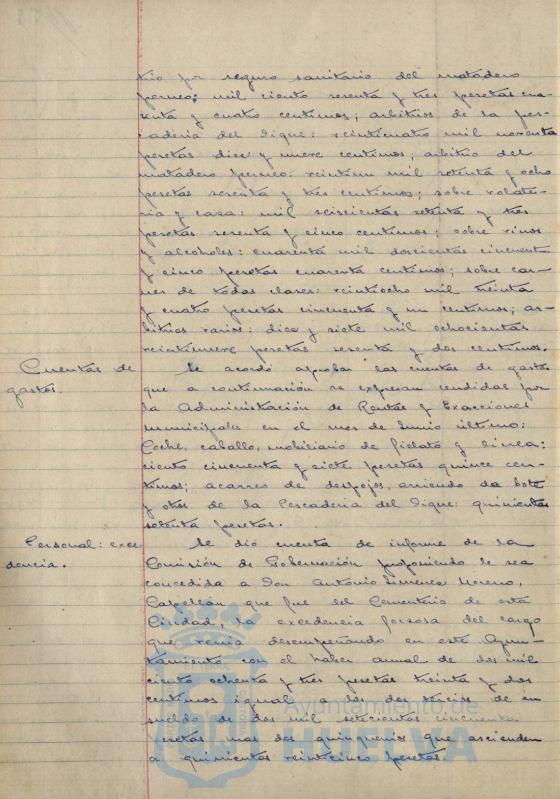 trio por seguro sanitario del matadero
porcuno; mil ciento sesenta y tres pesetas cua-
renta y cuatro centimos; arbitrios de la pes-
caderia del Dique: veinticuatro mil noventa
pesetas diez y nueve centimos; arbitrio del
matadero porcuno: veintiun mil setenta y ocho
pesetas sesenta y tres centimos; sobre volate-
ria y caza: mil seiscientas setenta y tres
pesetas sesenta y cinco centimos; sobre vinos
y alcoholes: cuarenta mil doscientas cincuenta
y cinco pesetas cuarenta centimos; sobre car-
nes de todas clases: veintiocho mil treinta
y cuatro pesetas cincuenta y un centimos; ar-
bitrios varios: diez y siete mil ochocientas
veintinueve pesetas sesenta y dos centimos.
Cuentas de
gastos.
Se acordó aprobar las cuentas de gastos
que a continuación se expresan rendidas por
la Administración de Rentas y Exacciones
municipales en el mes de Junio último:
Coche, caballo, mobiliario de fielato y linea:
ciento cincuenta y siete pesetas quince cen-
timos; acarreo de despojos, arriendo de bote
y otros de la Pescaderia del Dique: quinientas
setenta pesetas.
Personal: exce
dencia.
Se dió cuenta de informe de la
Comisión de Gobernación proponiendo le sea
concedida a Don Antonio Jimenez Moreno,
Capellán que fue del Cementerio de esta
Ciudad, la excedencia forzosa del cargo
que venia desempeñando en este Ayun-
tamiento con el haber anual de dos mil
ciento ochenta y tres pesetas treinta y dos
centimos igual a los dos tercios de su
sueldo de dos mil setecientas cincuenta
pesetas mas dos quinquenios que ascienden
a quinientas veinticinco pesetas.
Ayuntamiento de
HUELVA